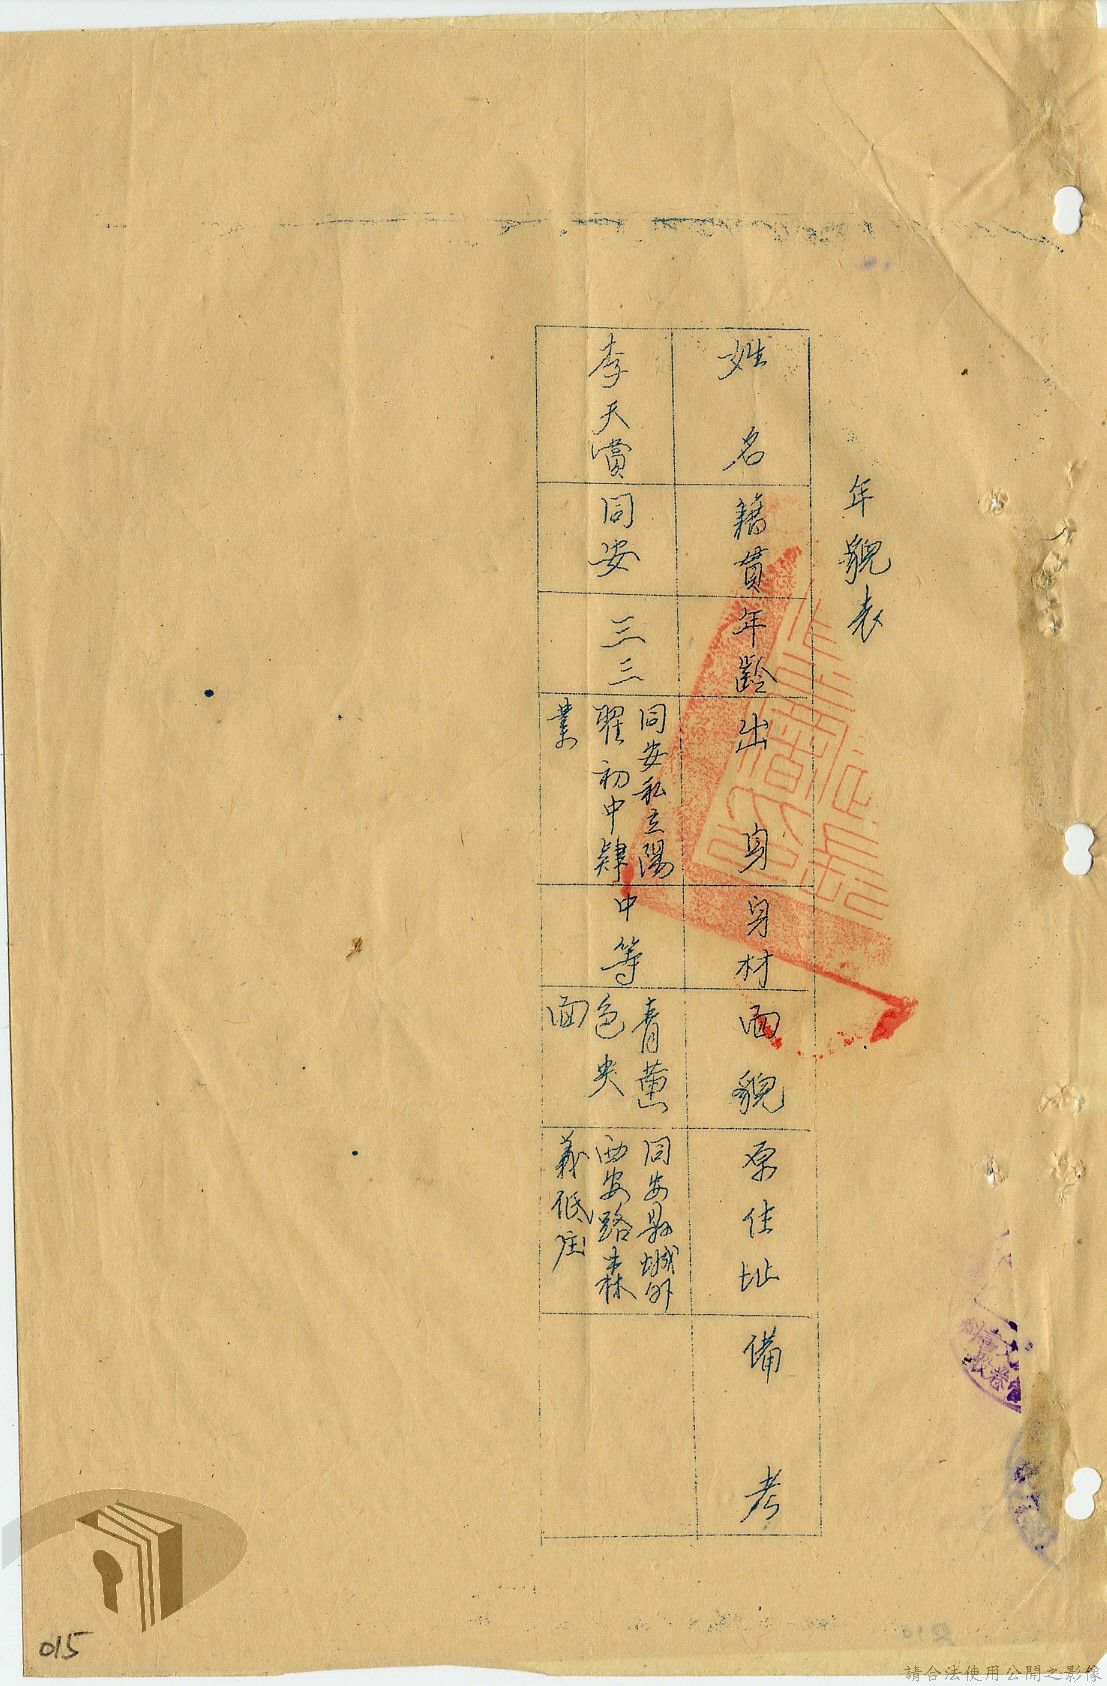 年貌表
姓名
籍貫
年齡
出身
身材
面貌
原住址
備考
李天賞
同安
三三
同安私立陽
翟初中肄
業
中等
色尖
面
同安縣城外
西安路森
義低庄
015
請合法使用公開之影像